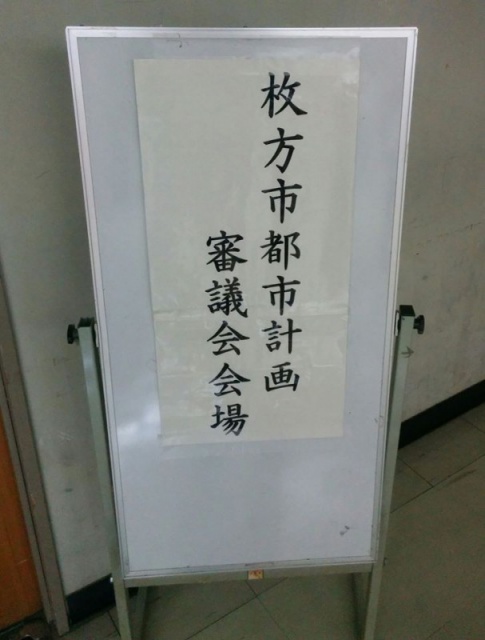 枚方市都市計画
審議会会場